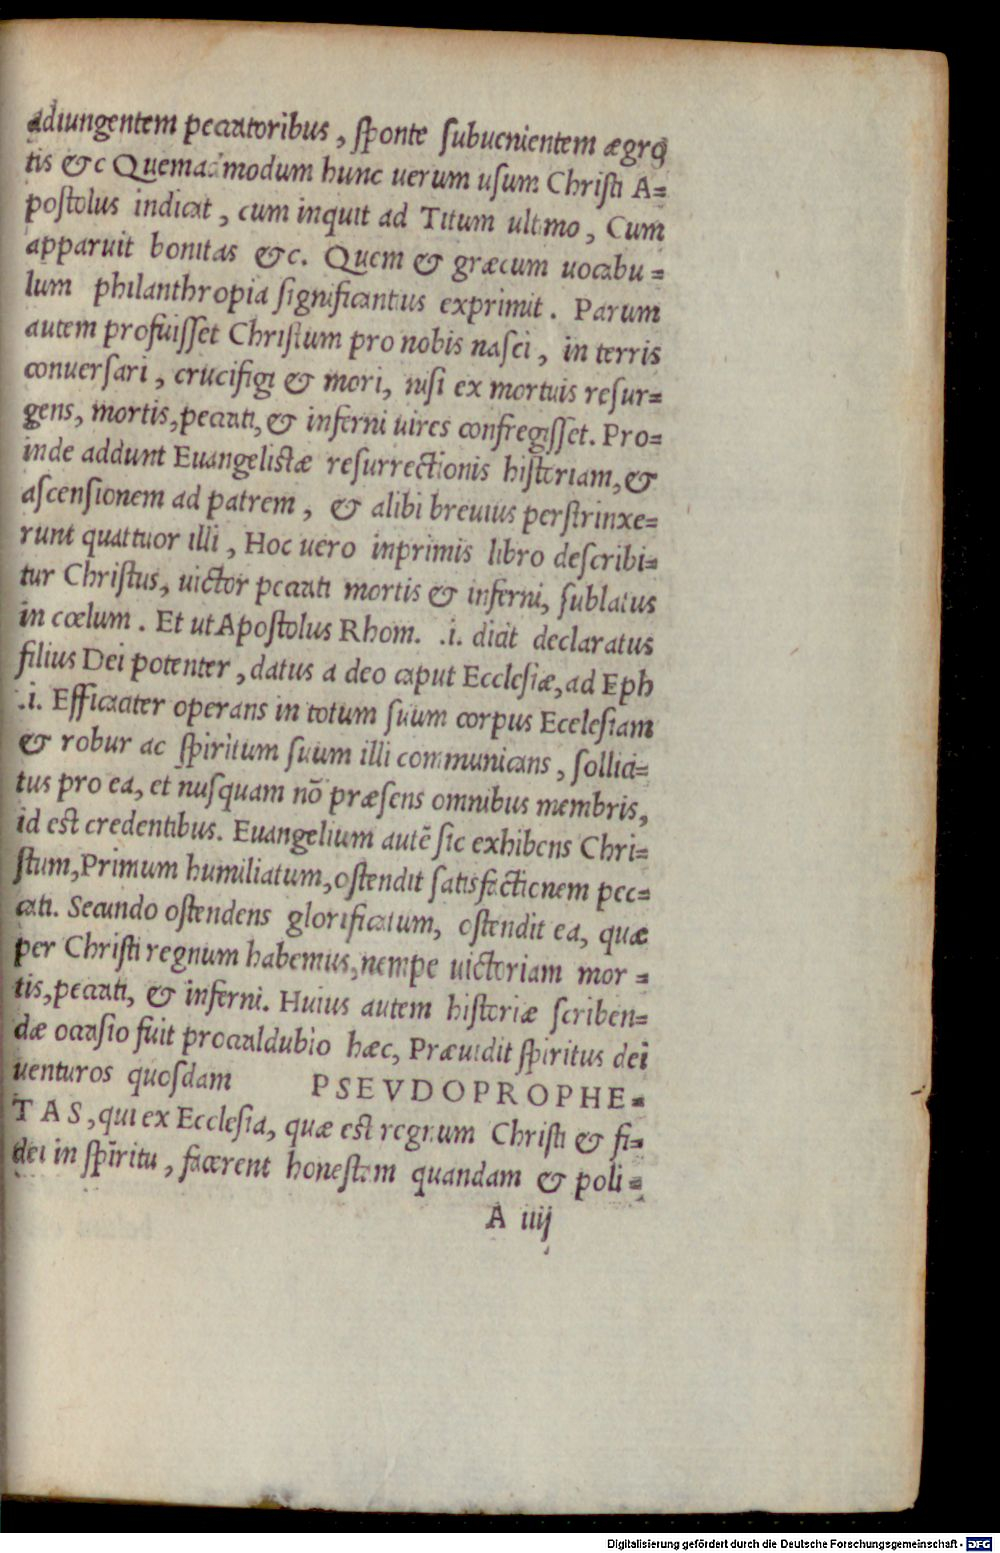 adiungentem peccatoribus, sponte subuenientem ægro
tis &c Quemadmodum hunc uerum usum Christi A=
postolus indicat, cum inquit ad Titum ultimo, Cum
apparuit bonitas &c. Quem & græcum uocabu=
lum philanthropia significantius exprimit. Parum
autem profuisset Christum pro nobis nasci, in terris
conuersari, crucifigi & mori, nisi ex mortuis resur=
gens, mortis, peccati, & inferni uires confregisset. Pro=
inde addunt Euangelistæ resurrectionis historiam, &
ascensionem ad patrem, & alibi breuius perstrinxe=
runt quattuor illi, Hoc uero inprimis libro describi=
tur Christus, uictor peccati mortis & inferni, sublatus
in cœlum. Et ut Apostolus Rhom. .i. dicit declaratus
filius Dei potenter, datus a deo caput Ecclesiæ, ad Eph
.i. Efficaciter operans in totum suum corpus Ecelesiam
& robur ac spiritum suum illi communicans, sollici=
tus pro ea, et nusquam nō præsens omnibus membris,
id est credentibus. Euangelium autē sic exhibens Chri=
stum, Primum humiliatum, ostendit satisfactionem pec=
cati. Secundo ostendens glorificatum, ostendit ea, quæ
per Christi regnum habemus, nempe uictoriam mor=
tis, peccati, & inferni. Huius autem historiæ scriben=
dæ occasio fuit procaldubio hæc, Præuidit spiritus dei
uenturos quosdam PSEVDOPROPHE=
TAS, qui ex Ecclesia, quæ est regnum Christi & fi=
dei in spiritu, facerent honestam quandam & poli=
A iiij
Digitalisierung gefördert durch die Deutsche Forschungsgemeinschaft - DFG